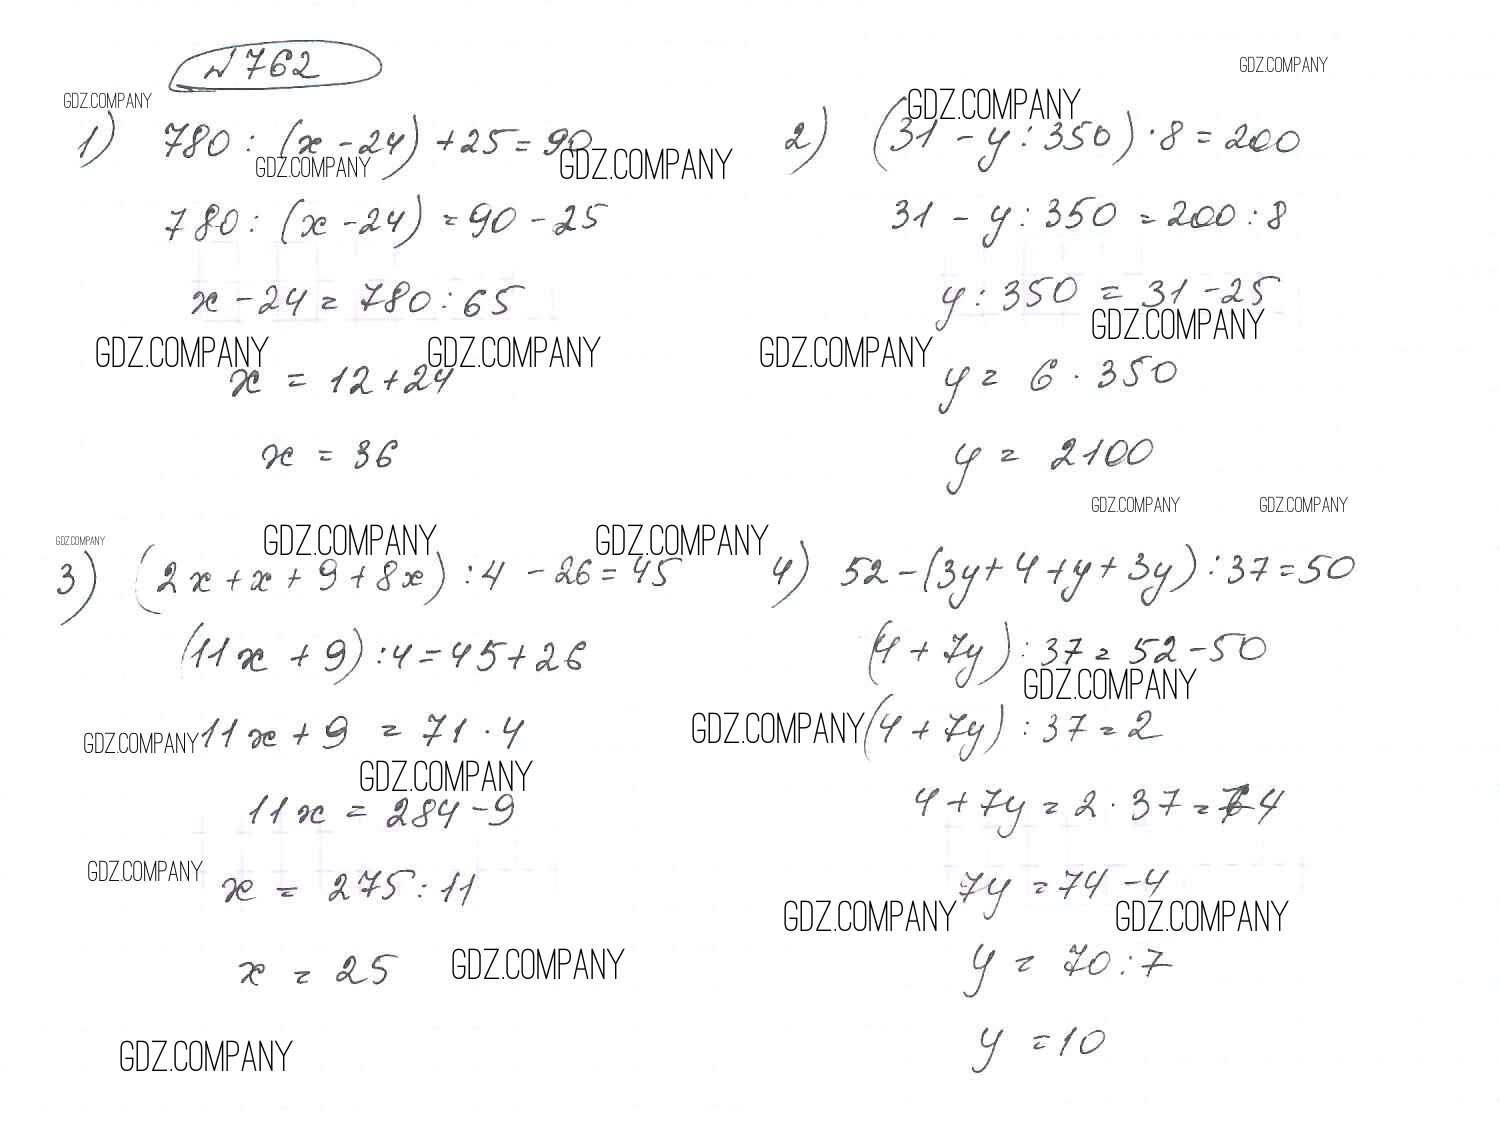 №762
GDZ.COMPANY
GDZ.COMPANY
GDZ.COMPANY
1) 780 : (x - 24) + 25 = 90
GDZ.COMPANY
GDZ.COMPANY
780 : (x - 24) = 90 - 25
x - 24 = 780 : 65
GDZ.COMPANY
GDZ.COMPANY
x = 12 + 24
x = 36
2) (31 - y : 350) · 8 = 200
31 - y : 350 = 200 : 8
y : 350 = 31 - 25
GDZ.COMPANY
GDZ.COMPANY
y = 6 · 350
y = 2100
GDZ.COMPANY
GDZ.COMPANY
GDZ.COMPANY
GDZ.COMPANY
GDZ.COMPANY
3) (2x + x + 9 + 8x) : 4 - 26 = 45
(11x + 9) : 4 = 45 + 26
GDZ.COMPANY
11x + 9 = 71 · 4
GDZ.COMPANY
11x = 284 - 9
GDZ.COMPANY
x = 275 : 11
x = 25
GDZ.COMPANY
GDZ.COMPANY
4) 52 - (3y + 4 + y + 3y) : 37 = 50
(4 + 7y) : 37 = 52 - 50
GDZ.COMPANY
GDZ.COMPANY
(4 + 7y) : 37 = 2
4 + 7y = 2 · 37 = 74
7y = 74 - 4
GDZ.COMPANY
GDZ.COMPANY
y = 70 : 7
y = 10